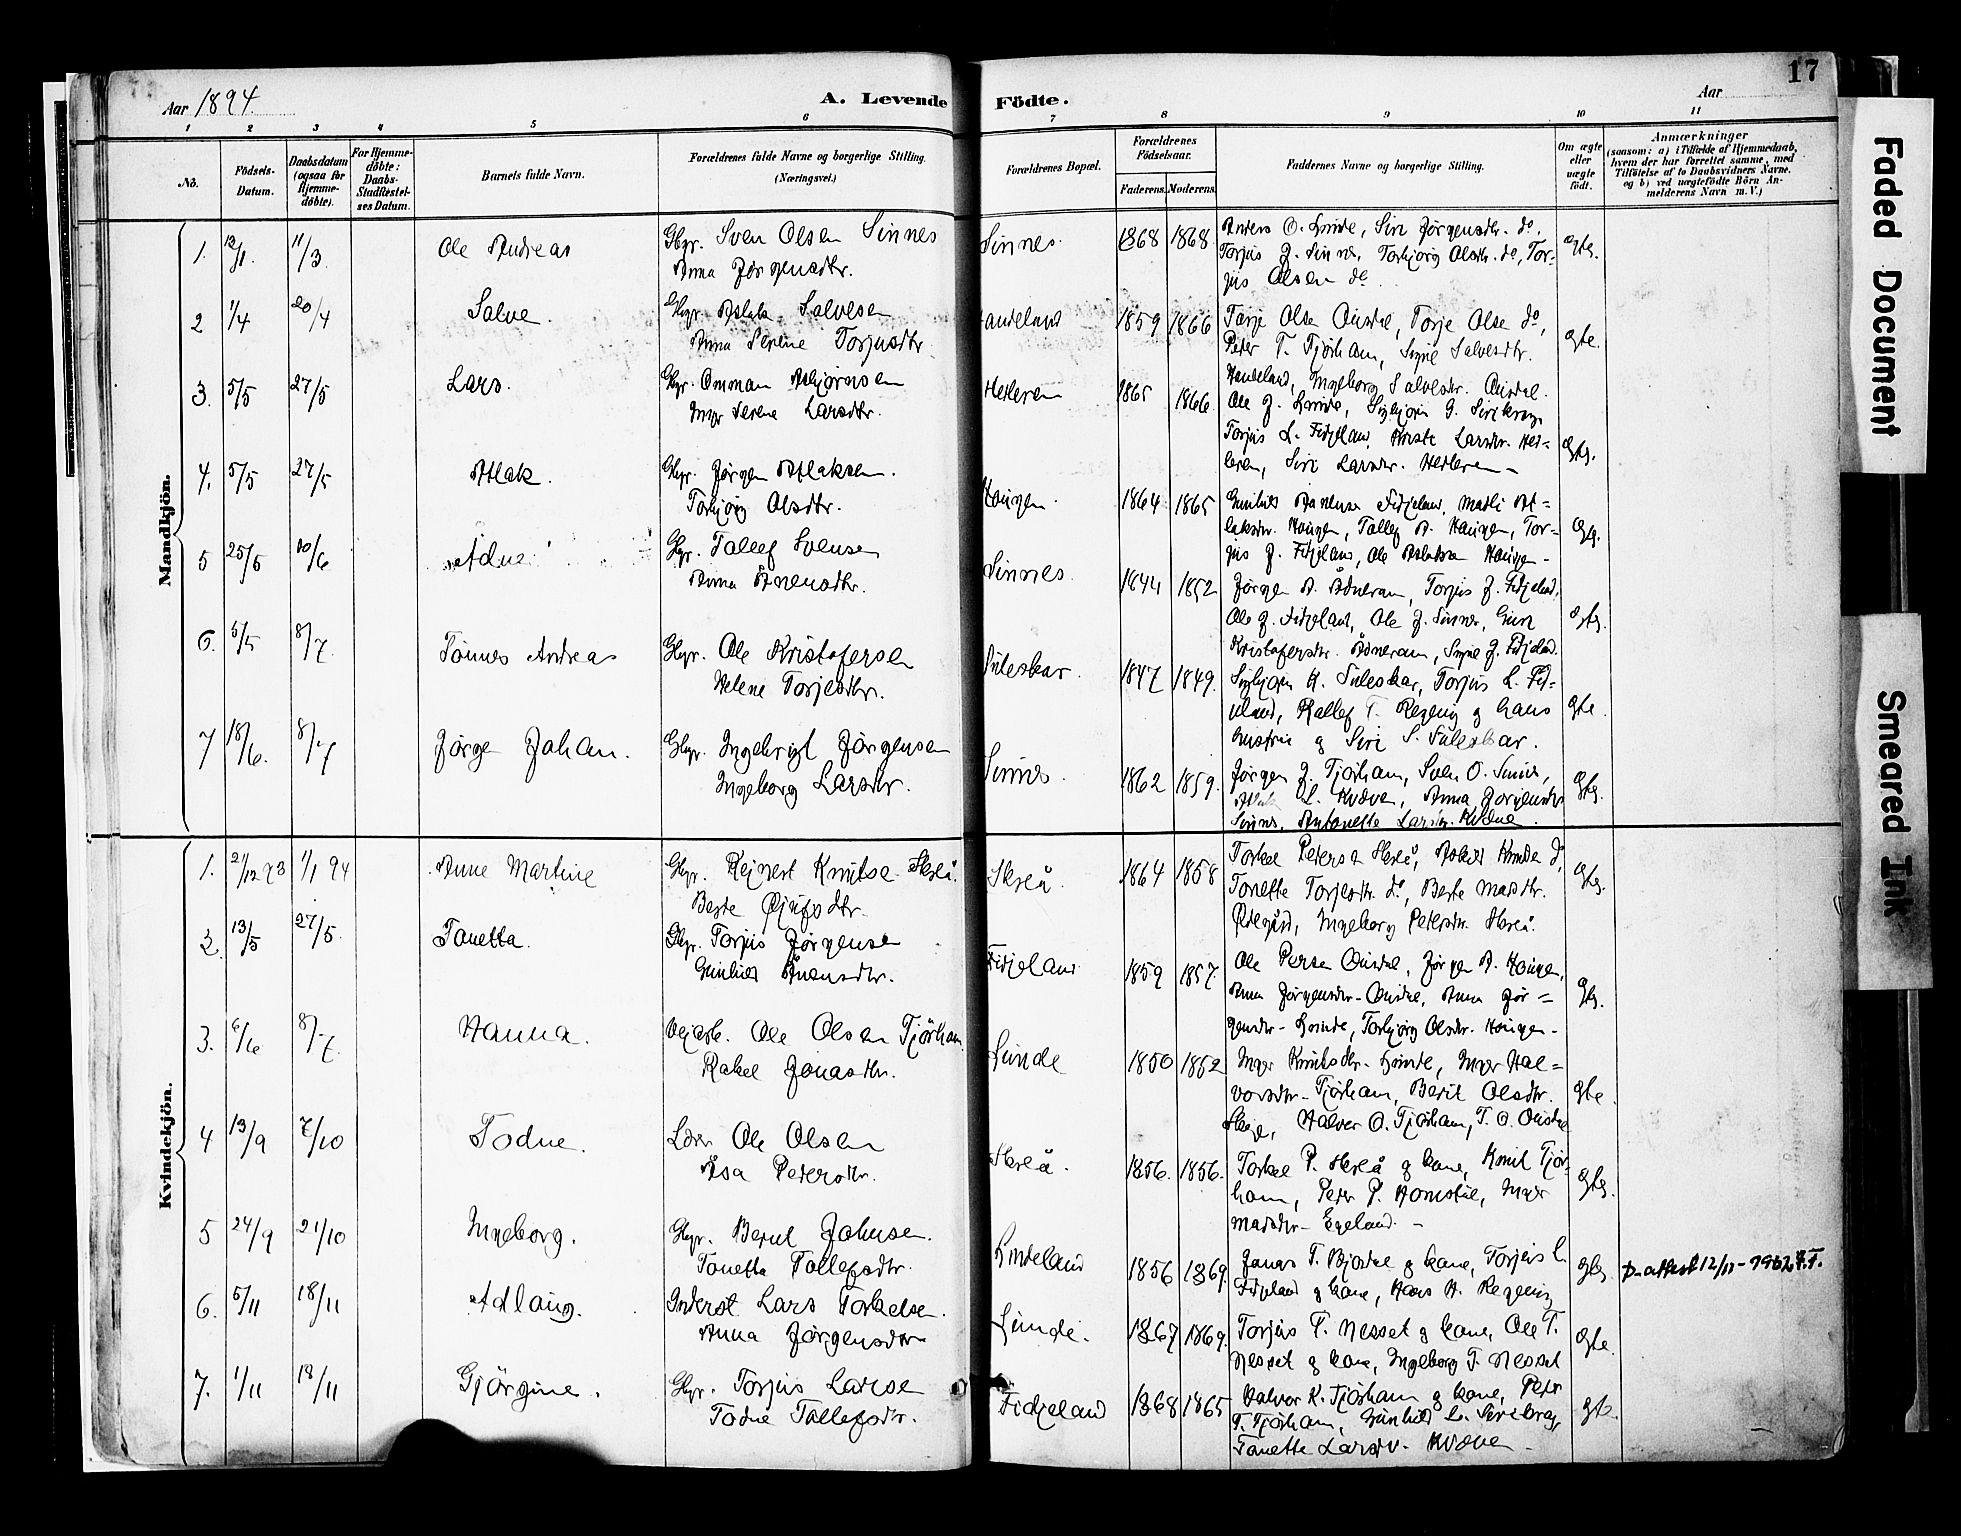 Aar 1894.
A. Levende Födte.
Aar
17
1 2 3 4 5 6 7 8 9 10 11
No.
Födsels-Datum.
Daabsdatum (ogsaa for Hjemme-döbte).
For Hjemme-döbte: Daabs-Stadfæstel-ses Datum.
Barnets fulde Navn.
Forældrenes fulde Navne og borgerlige Stilling. (Næringsvei.)
Forældrenes Bopæl.
Forældrenes Födselsaar.
Faderens. Moderens.
Faddernes Navne og borgerlige Stilling.
Om ægte eller uægte födt.
Anmærkninger
(saasom: a) i Tilfælde af Hjemmedaab,
hvem der har forrettet samme, med
Tilföielse af to Daabsvidners Navne,
og b) ved uægtefödte Börn An-
melderens Navn m. V.)
Mandkjön.
1. 12/1. 11/3 Ole Andreas Gbr. Sven Olsen Sinnes
Anna Jørgensdtr.
Sinnes. 1868 1868. Anders O. Lunde, Siri Jørgensdtr. do.
Torjus J. Sinnes, Torbjørg Olsdtr. do, Tor-
jus Olsen do
ægte.
2 1/4 20/4 Salve. Gbr. Aslak Salvesen
Anna Serine Torjusdtr.
1859 1866 Tarje Olsen Ousdal, Torje Olse do,
Peder T. Tjørham, Signe Salvesdtr.
Haudeland, Ingeborg Salvesdtr. Ousdal.
ægte.
3. 5/5 27/5 Lars. Gbr. Omman Asbjørnsen
Inger Serene Larsdtr.
Hedleren 1865 1866. Ole J. Lunde, Sigbjørn G. Sirekrog
Torjus L. Fidjeland, Larsdtr. Hed-
leren, Siri Larsdtr. Hedleren –
ægte.
4. 5/5 27/5 Atlak. Gbr. Jørgen Atlaksen.
Torbjørg Olsdtr.
Hougen. 1864 1865 Gunhild Fidjeland, Malli At-
laksdtr. Hougen, Tallef A. Hougen, Tor-
jus J. Fidjeland, Ole Aslaksen Hougen –
ægte.
5 25/5 10/6 Adne. Gbr. Tallef Svensen
Anna Ånensdtr.
Sinnes. 1844 1852 Jørgen A. Ådneram, Torjus J. Fidjeland,
Ole J. Fidjeland, Ole J. Sinnes, Guri
Kristofersdtr. Ådneram, Signe J. Fidjeland.
ægte.
6. 5/5 8/7. Tønnes Andreas Gbr. Ole Kristofersen
Helene Torjesdtr.
Suleskar. 1847 1849. Sigbjørn K. Suleskar, Torjus L. Fid-
jeland, Rallef T. Regevig og hans
hustru og Siri S. Suleskar.
ægte.
7 18/6. 8/7 Jørge Johan. Gbr. Ingebrigt Jørgensen
Ingeborg Larsdtr.
Sinnes. 1862 1859. Jørgen J. Tjørham, Sven O. Sinnes,
Atlak L. Kvæven, Anna Jørgensdtr
Sinnes, Antonette Larsdtr. Kvæven.
ægte.
Kvindekjön.
1. 21/12 93 1/1 94 Anne Martine Gbr. Rejnert Knutsen Skreå.
Berte
Skreå. 1864 1858 Torkel Peterson Skreå, do,
Tonette Torjesdtr. do, Berte Madsdtr.
Ødegård, Ingeborg Petersdtr. Skreå.
ægte.
2. 13/5 27/5. Tonetta. Gbr. Torjus Jørgensen
Gunhild Ånensdtr.
Fidjeland 1859 1857. Ole Persen Ousdal, Jørgen A. Hougen,
Anna Jørgensdtr. Ousdal, Anna Jør-
gensdtr – Lunde, Torbjørg Olsdtr. Hougen –
ægte.
3. 6/6 8/7. Hanna. Vejarb. Ole Olsen Tjørham.
Rakel Jonasdtr.
Lunde 1850 1852 Inger Knutsdtr. Lunde, Inger Hal-
vorsdtr. Tjørham, Berit Olsdtr.
Halvor O. Tjørham, T. O. Ousdal
ægte.
4 13/9 7/10 Todne. Lærer Ole Olsen
Åsa Petersdtr.
Skreå. 1856. 1856. Torkel P. Skreå og kone, Knut Tjør-
ham, Peder P. Homstøl, Inger
Madsdtr – Egeland. –
ægte.
5 24/9 21/10 Ingeborg. Gbr. Bernt Johnsen.
Tonetta Tallefsdtr.
Lindeland 1856 1869. Jonas T. Bjordal og kone, Torjus L.
Fidjeland og kone, Hans H. Regevig
ægte
D-attest 12/11-1962 F.T.
6. 5/11 18/11 Adlaug. Inderst Lars Torkelsen.
Anna Jørgensdtr
Lunde. 1867 1869. Torjus T. Nesset og kone, Ole T.
Nesset og kone, Ingeborg T. Nesset
ægte.
7. 1/11 18/11 Gjørgine. Gbr. Torjus Larsen
Todne Tallefsdtr.
Fidjeland 1868 1865 Halvor K. Tjørham og kone, Peter
T. Tjørham, Gunhild L. Sirekrog,
Tonette Larsdtr. Kvæven –
ægte.
Faded Document
Smeared Ink